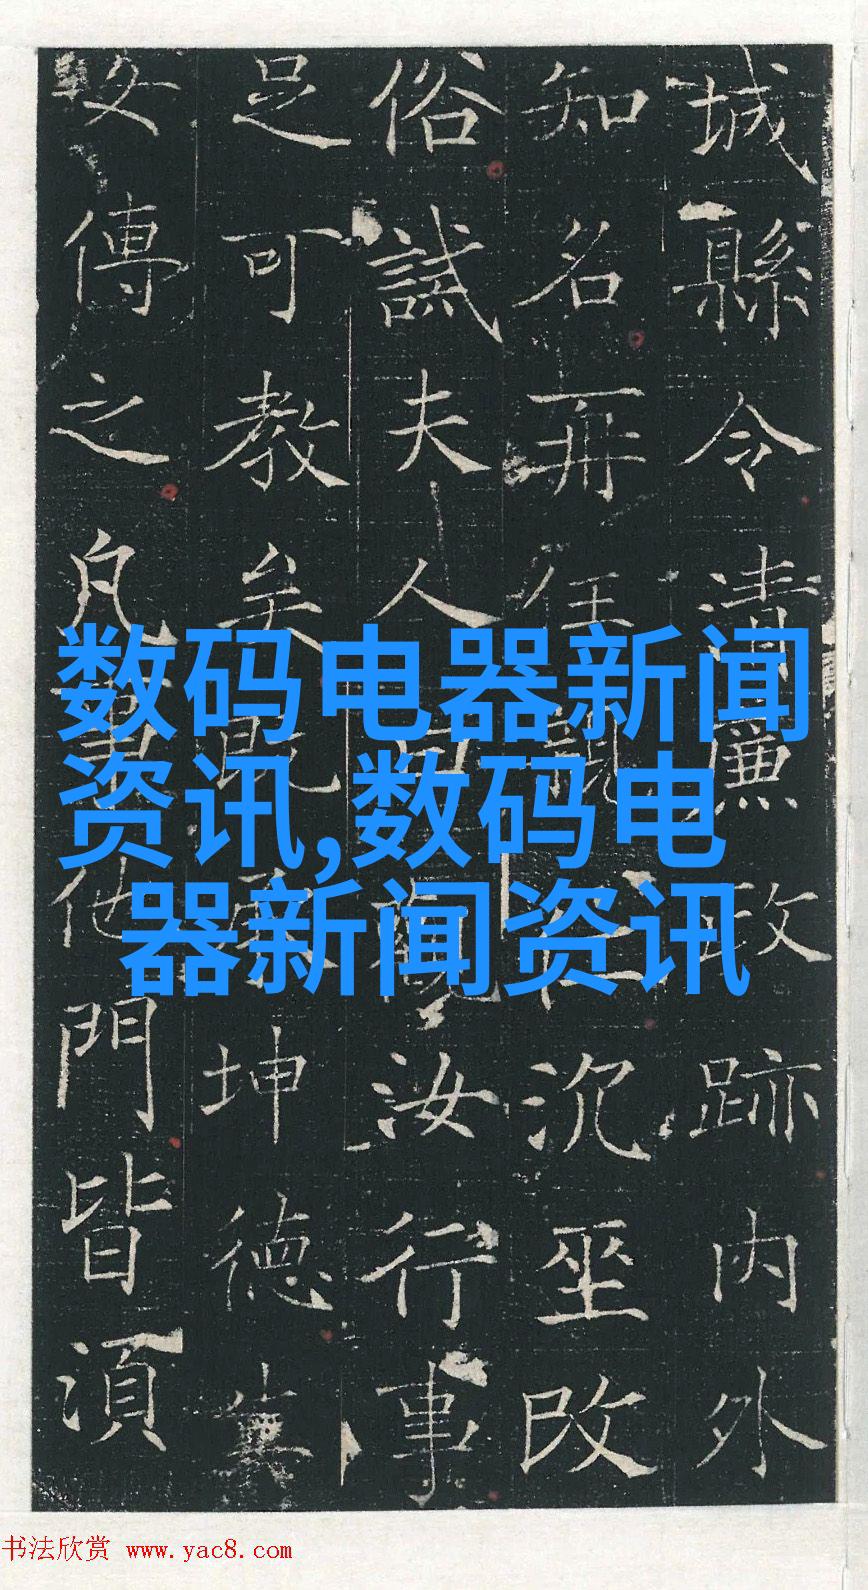 城縣令清廉政跡内外
知名再任沉坐改
俗試夫人汝行事
足可教矣既坤德
女傳之凡他門皆須
数码电器新闻
资讯,数码电
器新闻资讯
书法欣赏 www.yac8.com